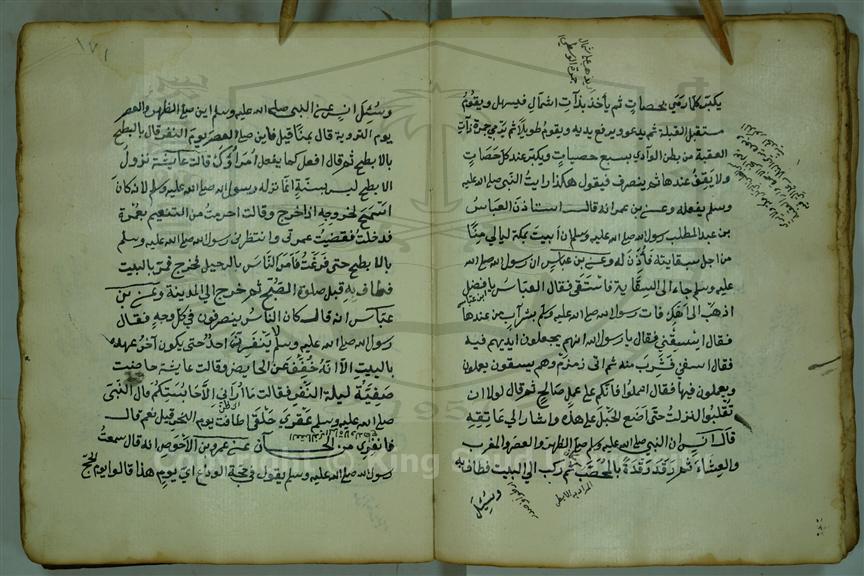 يكبر كلما رمى بحصاة ثم يأخذ بذات الشمال فيسهل ويقوم
مستقبل القبلة ثم يدعو ويرفع يديه ويقوم طويلا ثم يرمي جمرة ذات
العقبة من بطن الوادي بسبع حصيات ويكبر عند كل حصاة
ولا يقف عندها ثم ينصرف فيقول هكذا رايت النبي صلى الله عليه
وسلم يفعله وعن بن عمر انه قال استاذن العباس
بن عبد المطلب رسول الله صلى الله عليه وسلم ان أبيت بمكة ليالي منا
من اجل سقايته فأذن له وعن بن عباس ان رسول الله صلى الله
عليه وسلم جاء الى السقاية فاستقى فقال العباس يا فضل
اذهب الى أمك فات رسول الله صلى الله عليه وسلم بشراب من عندها
فقال اسقني فقال يا رسول الله انهم يجعلون ايديهم فيه
فقال اسقني فشرب منه ثم اتى زمزم وهم يسقون
ويعملون فيها فقال اعملوا فانكم على عمل صالح ثم قال لولا ان
تغلبوا لنزلت حتى اضع الحبل على هذه واشار الى عاتقه
قال انس ان النبي صلى الله عليه وسلم صلى الظهر والعصر والمغرب
والعشاء ثم رقد رقدة بالمحصب ثم ركب الى البيت فطاف به
وسئل
١٧١
وسئل انس عن النبي صلى الله عليه وسلم اين صلى الظهر والعصر
يوم التروية قال بمنا قيل فاين صلى العصر يوم النفر قال بالابطح
ثم قال افعل كما يفعل امراؤك قالت عايشة نزول
الابطح ليس بسنة انما نزله رسول الله صلى الله عليه وسلم لانه كان
اسمح لخروجه اذا خرج وقالت احرمت من التنعيم بعمرة
فدخلت فقضيت عمرتي وانتظرني رسول الله صلى الله عليه وسلم
بالابطح حتى فرغت فامر الناس بالرحيل فخرج فمر بالبيت
فطاف به قبل صلوة الصبح ثم خرج الى المدينة وعن بن
عباس انه قال كان الناس ينصرفون في كل وجه فقال
رسول الله صلى الله عليه وسلم لا ينفرن احد حتى يكون آخر عهده
بالبيت الا انه خفف عن الحايض وقالت عايشة حاضت
صفية ليلة النفر فقالت ما أراني الا حابستكم قال النبي
صلى الله عليه وسلم عقرى حلقى اطافت يوم النحر قيل نعم قال
فانفري من الحسان عن عمرو بن الاحوص انه قال سمعت
رسول الله صلى الله عليه وسلم يقول في حجة الوداع اي يوم هذا قالوا يوم الحج